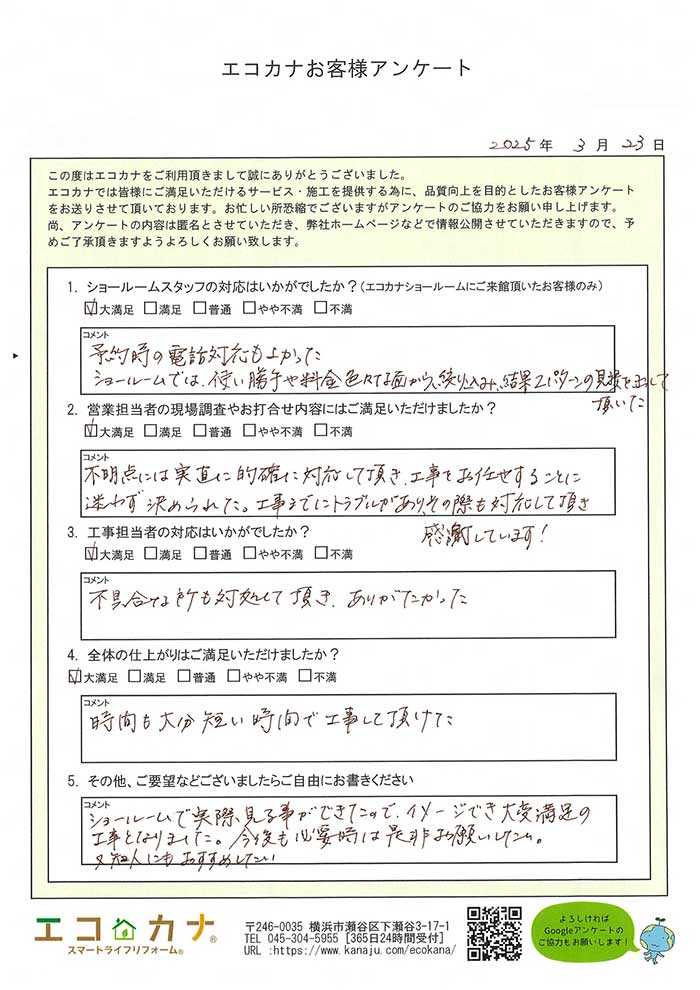 エコカナお客様アンケート
2025年 3月 23日
この度はエコカナをご利用頂きまして誠にありがとうございました。
エコカナでは皆様にご満足いただけるサービス・施工を提供する為に、品質向上を目的としたお客様アンケート
をお送りさせて頂いております。お忙しい所恐縮でございますがアンケートのご協力をお願い申し上げます。
尚、アンケートの内容は匿名とさせていただき、弊社ホームページなどで情報公開させていただきますので、予
めご了承頂きますようよろしくお願い致します。
1. ショールームスタッフの対応はいかがでしたか？(エコカナショールームにご来館頂いたお客様のみ)
☑大満足 □満足 □普通 □やや不満 □不満
コメント
予約時の電話対応もよかった
ショールームでは、使い勝手や料金色々な面から、絞り込み、結果2パターンの見積を出して
頂いた
2. 営業担当者の現場調査やお打合せ内容にはご満足いただけましたか？
☑大満足 □満足 □普通 □やや不満 □不満
コメント
不明点には実直に的確に対応して頂き、工事をお任せすることに
迷わず決められた。工事までにトラブルがあり、その際も対応して頂き
感謝しています！
3. 工事担当者の対応はいかがでしたか？
☑大満足 □満足 □普通 □やや不満 □不満
コメント
不具合な所も対処して頂き、ありがたかった
4. 全体の仕上がりはご満足いただけましたか？
☑大満足 □満足 □普通 □やや不満 □不満
コメント
時間も大分短い時間で工事して頂けた
5. その他、ご要望などございましたらご自由にお書きください
コメント
ショールームで実際、見る事ができたので、イメージでき大変満足の
工事となりました。今後も必要時は是非お願いしたい。
又知人にもおすすめしたい
エコカナ®
スマートライフリフォーム®
〒246-0035 横浜市瀬谷区下瀬谷3-17-1
TEL 045-304-5955 [365日24時間受付]
URL :https://www.kanaju.com/ecokana/
よろしければ
Googleアンケートの
ご協力もお願いします！